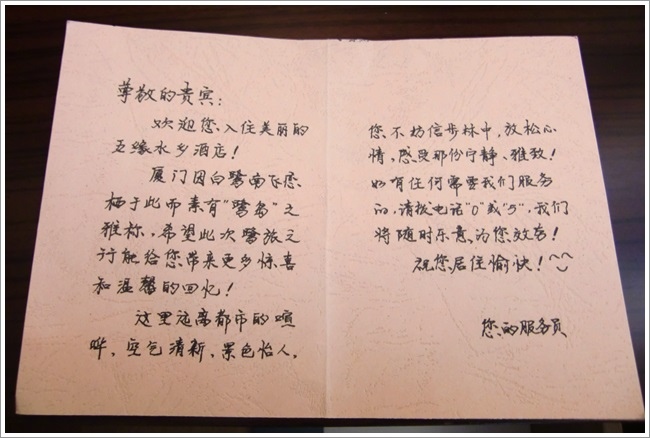 尊敬的贵宾：
欢迎您入住美丽的
五缘水乡酒店！
厦门因白鹭南飞息
栖于此而素有"鹭岛"之
雅称，希望此次鹭旅之
行能给您带来更多惊喜
和温馨的回忆！
这里远离都市的喧
哗，空气清新，景色怡人，
您不妨信步林中，放松心
情，感受那份宁静、雅致！
如有任何需要我们服务
的，请拨电话"0"或"5"，我们
将随时乐意为您效劳！
祝您居住愉快！^^
您的服务员